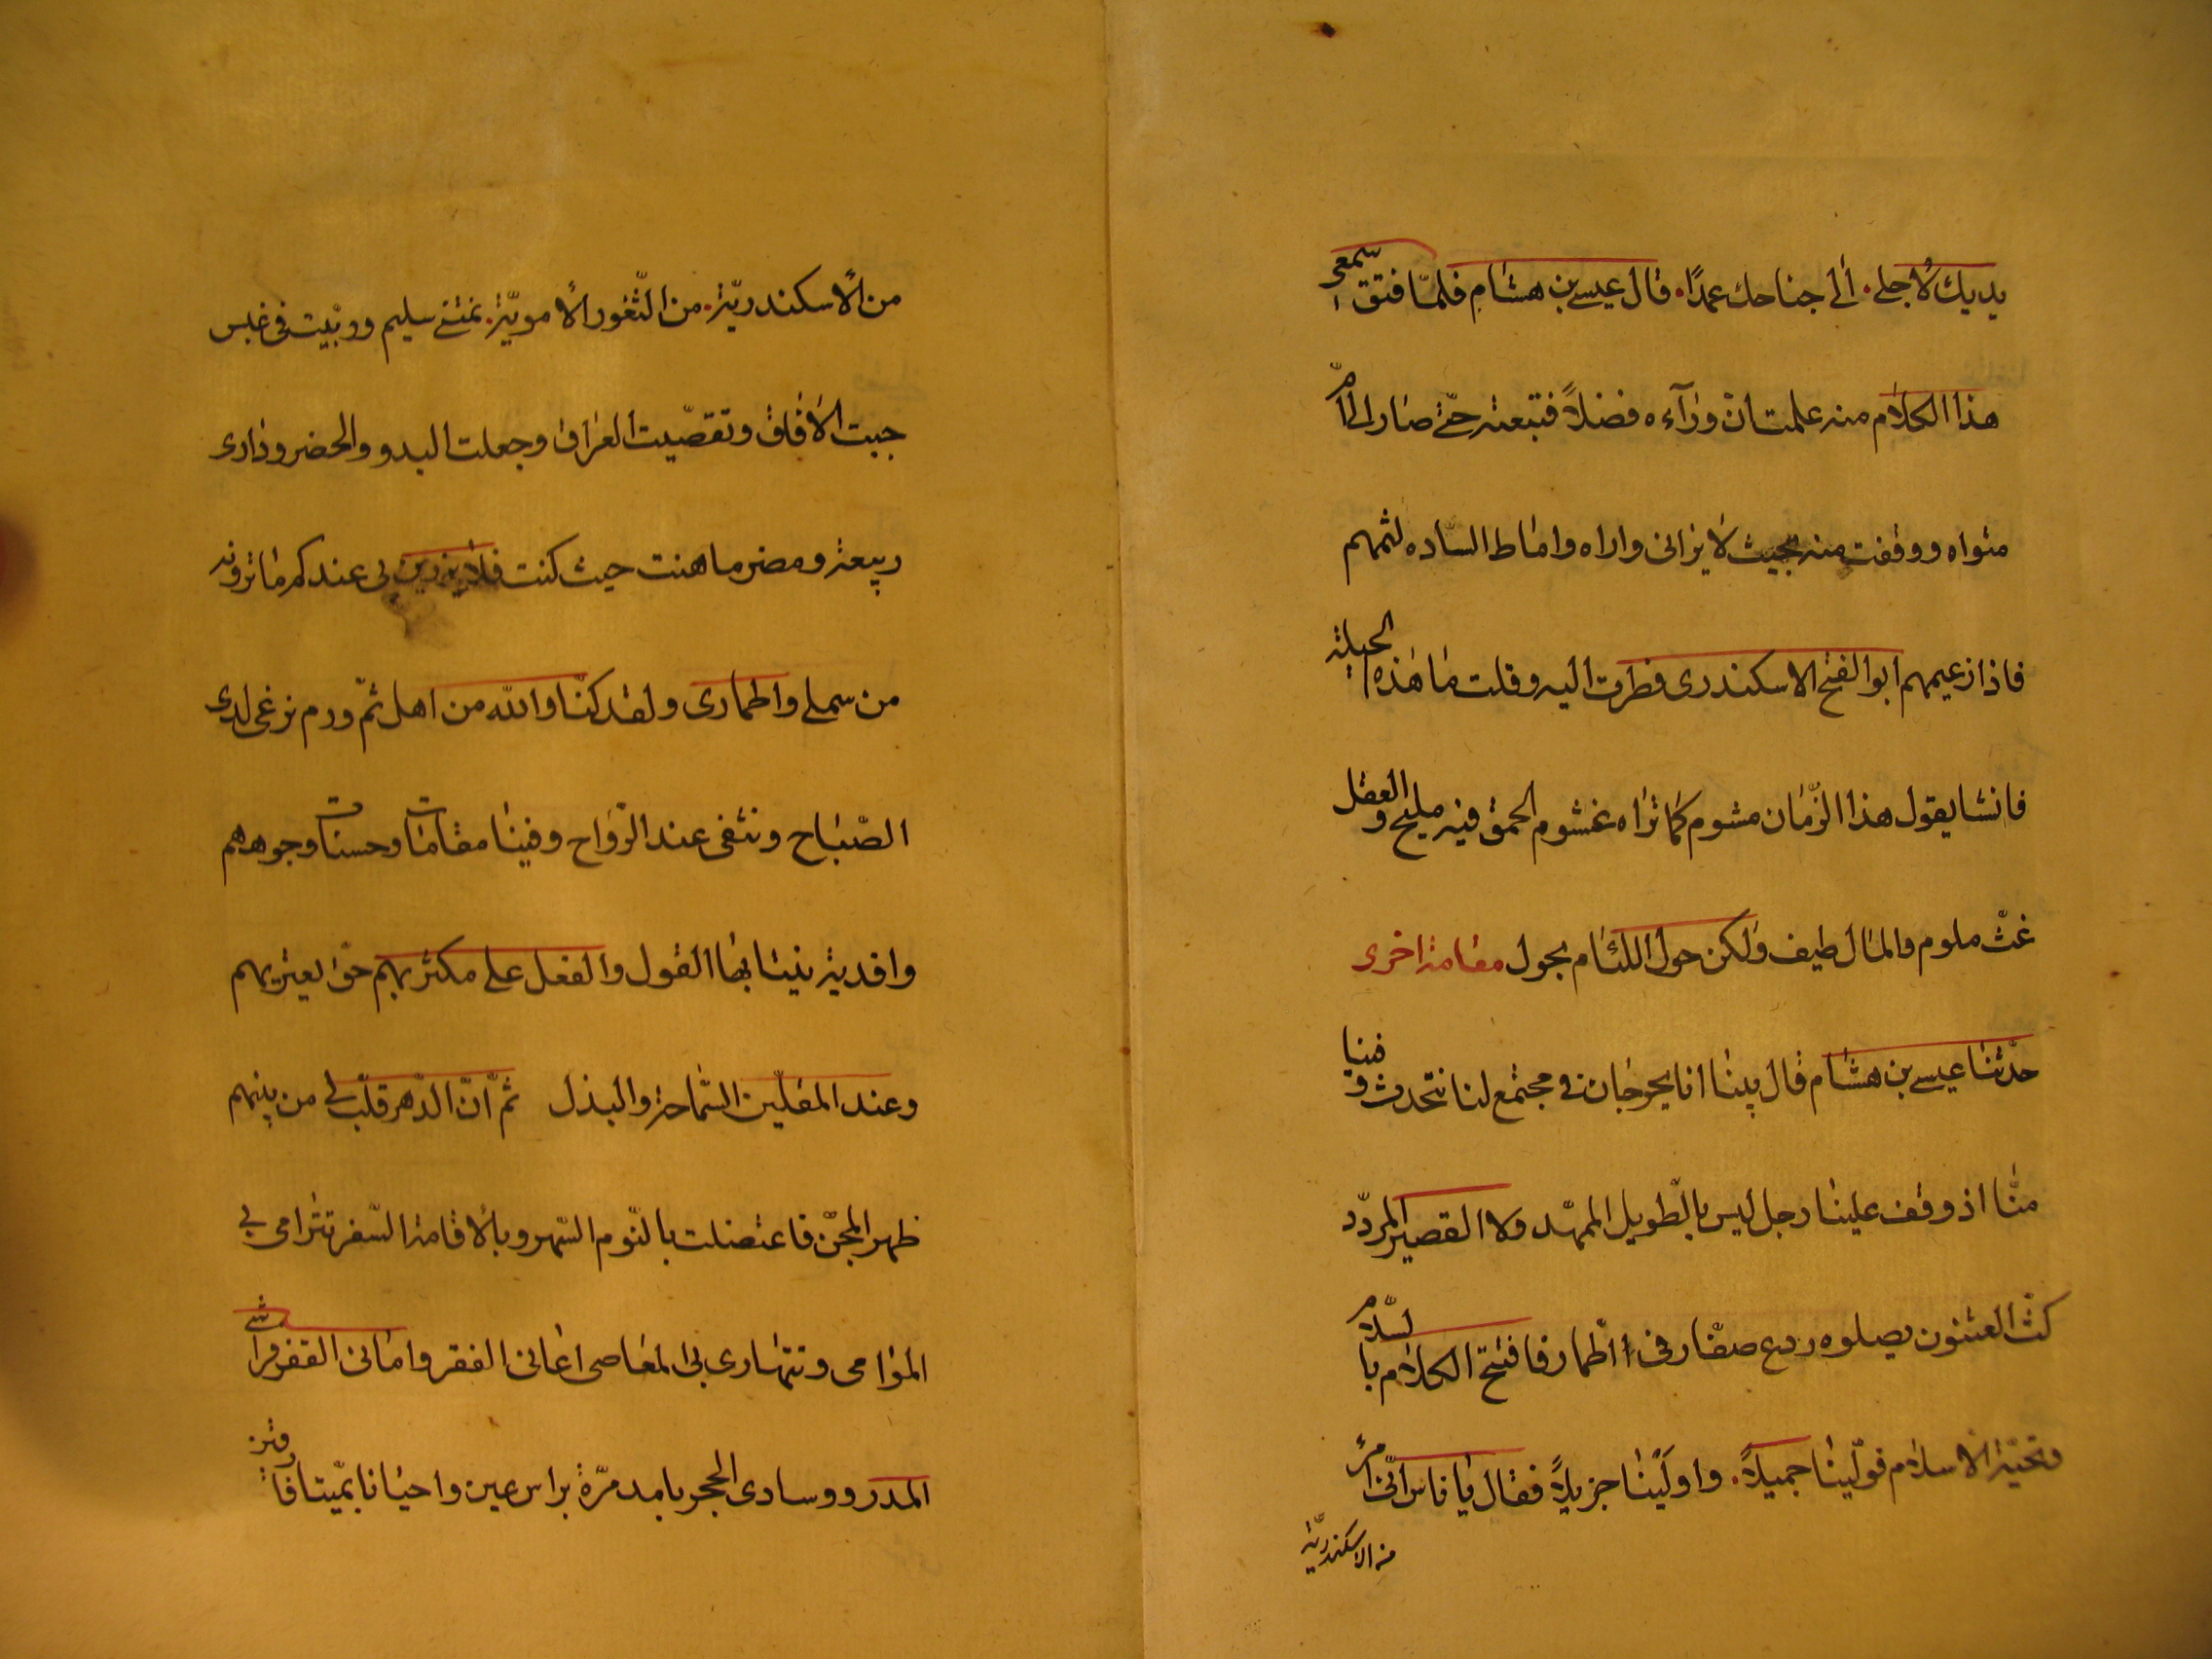 يديك لاجلى. الى جناحك عمدًا. قال عيسى بن هشام فلمّا فتق سمعى
هذا الكلام منه علمت انّ ورآءه فضلاً فتبعته حتّى صار الى امّ
مثواه ووقفت منه بحيث لا يرانى واراه واماط السّاده لثمهم
فاذا زعيمهم ابو الفتح الاسكندرى فنظرت اليه وقلت ما هذه الحيلة
فانشا يقول هذا الزّمان مشوم كما تراه غشوم الحمق فيه مليح والعقل
غثّ ملوم والمال طيف ولكن حول اللئام يحول مقامة اخرى
حدّثنا عيسى بن هشام قال بينا انا بجرجان فى مجتمع لنا نتحدث وفينا
منّا اذ وقف علينا رجل ليس بالطّويل الممهّد ولا القصير المردّد
كثّ العثنون يصلوه ردع صفّار فى اطمار فافتتح الكلام بالسّلام
وتحيّة الاسلام فولّينا جميلاً. واولَيْنا جزيلاً فقال يا ناس انّى امرؤ
من الاسكندريّة
من الاسكندريّة. من الثّغور الامويّة. نمتنى سليم وربّيت فى عبس
جبت الافاق وتقصّيت العراق وجعلت البدو والحضر ودارى
ربيعة ومضر ما هنت حيث كنت فلا يزرين بى عندكم ما ترونه
من سملى واطمارى ولقد كنّا والله من اهل ثمّ ورم نرغى لدى
الصّباح ونثغى عند الرّواح وفينا مقامات وحسنات وجوههم
واندية ينتابها القول والفعل على مكثريهم حقّ يعتريهم
وعند المقلّين السّماحة والبذل ثمّ انّ الدّهر قلّب لى من بينهم
ظهر المجنّ فاعتضلت بالنّوم السّهر وبالاقامة السّفر تترامى بى
المرامى وتتهادى بى المغاصى اعانى الفقر وامانى القفر فراشى
المدر ووسادى الحجر بامد مرّة براس عين واحيانا بميّتافارقين